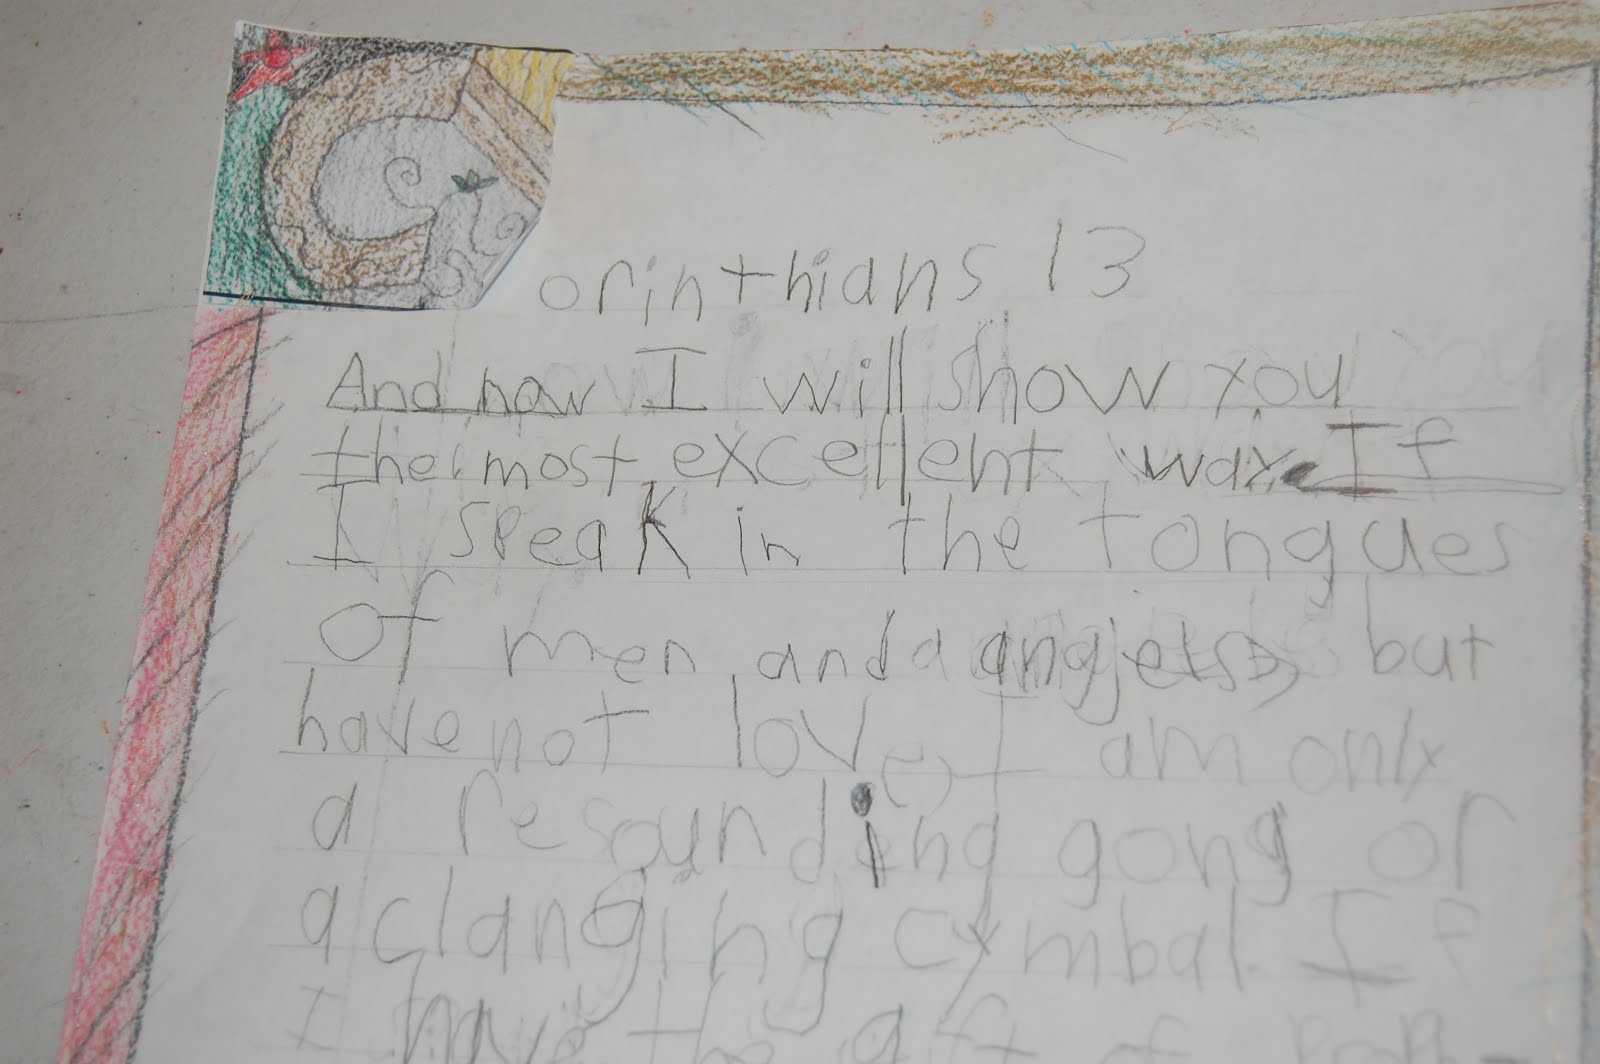 Corinthians 13
And now I will show you
the most excellent way. If
I speak in the tongues
of men and angels, but
have not love, I am only
a resounding gong or
a clanging cymbal. If
I have the gift of